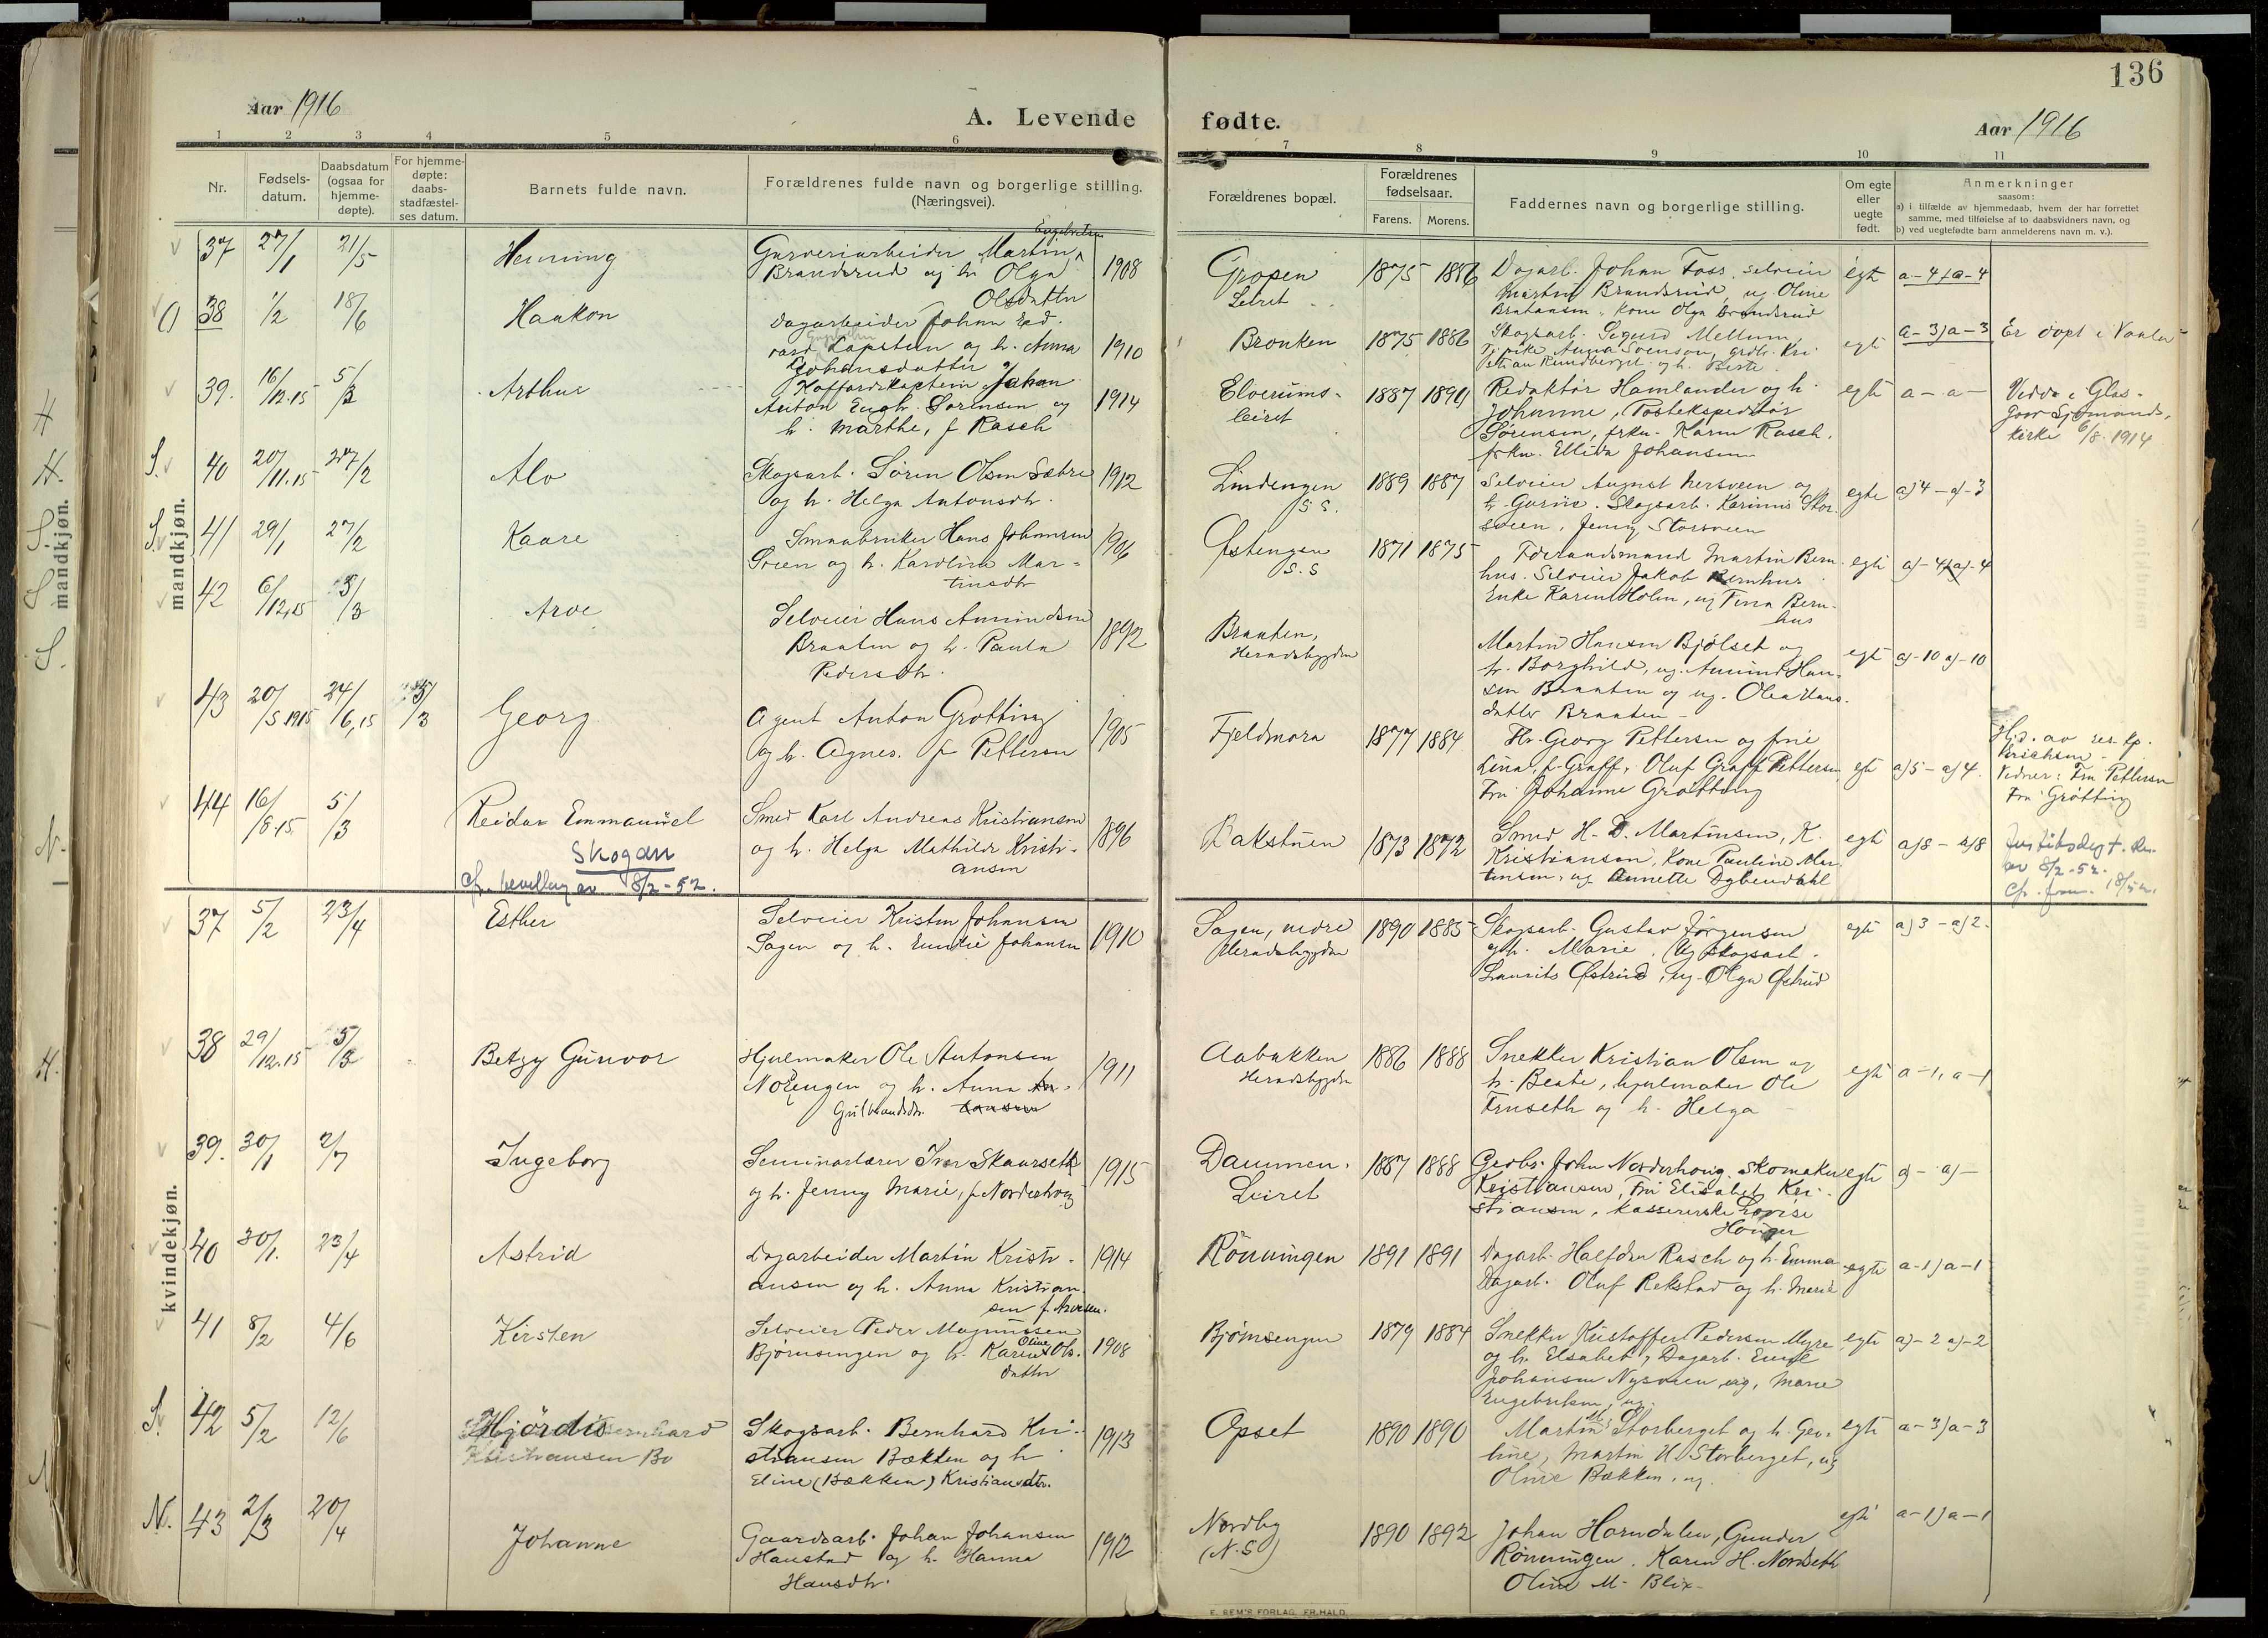 136
Aar 1916
A. Levende
fødte.
Aar 1916
1 2 3 4 5 6 7 8 9 10 11
Nr.
Fødsels-
datum.
Daabsdatum
(ogsaa for
hjemme-
døpte).
For hjemme-
døpte:
daabs-
stadfæstel-
ses datum.
Barnets fulde navn.
Forældrenes fulde navn og borgerlige stilling.
(Næringsvei).
Forældrenes bopæl.
Forældrenes
fødselsaar.
Farens. Morens.
Faddernes navn og borgerlige stilling.
Om egte
eller
uegte
født.
Anmerkninger
saasom:
a) i tilfælde av hjemmedaab, hvem der har forrettet
samme, med tilføielse af to daabsvidners navn, og
b) ved uegtefødte barn anmelderens navn m. v.).
mandkjøn.
37 27/1 21/5 Henning
Garveriarbeider Martin Engebretsen
Brandsrud og h. Olga
Olsdatter
1908
Gropen
Leiret
1875 1886
Dagarb. Johan Foss, selveier
Martin Brandsrud, ug. Oline
Brahansen, kone Olga Brandsrud
egte a-4)a-4
O 38 1/2 18/6 Haakon
Dagarbeider Johan Ed.
vard Lapsteen og h. Anna
Johansdatter
1910
Bronken
1875 1886
Skogsarb. Sigurd Mellum
Pike Anna Svenson, grdbr. Kri
stian Rundberget og h. Berte
egte a-3)a-3 Er døpt i Vaaler
39. 16/12.15 5/3 Arthur
Koffardikaptein Johan
Anton Engh. Sørensen og
h. Marthe, f Rasch
1914
Elverums-
leiret
1887 1890
Redaktør Hamlander og h.
Johanne, Postekspeditør
Sørensen, frkn. Karen Rasch,
frkn. Ellida Johansen
egte a- a-
Viede i Glas-
gow Sjømands-
kirke 6/8 1914
S. 40 20/11.15 27/2 Alv
Skogsarb. Søren Olsen Sætre
og h. Helga Antonsdtr.
1912
Lindengen
S S.
1889 1887
Selveier August Nersveen og
h. Gurine. Skogsarb. Karinus Stor-
sveen, Jenny Storsveen
egte a)4-a)-3
S. 41 29/1 27/2 Kaare
Smaabruker Hans Johansen
Sveen og h. Karoline Mar-
tinsdtr
1906
Østengen
S. S
1871 1875
Føderaadsmand Martin Bern
hus. Selveier Jakob Bernhus
Enke Karen Holen, ug Tina Bern-
hus
egte a)-4)a)-4
42 6/12.15 5/3 Arve
Selveier Hans Amundsen
Braaten og h. Paula
Pedersdtr.
1892
Braaten,
Heradsbygden
Martin Hansen Bjølset og
h. Borghild, ug. Amund Han-
sen Braaten og ug. Olea Hans-
datter Braaten
egte a)-10 a)-10
43 20/5 1915 24/6,15 5/3 Georg
Agent Anton Grøtting
og h. Agnes. f Pettersen
1905
Fjeldmora
1877 1884
Hr. Georg Pettersen og frue
Lina, f. Graff, Oluf Graff Pettersen
Fru Johanne Grøtting
egte a)5-a)4.
Hjd. av res. kp.
Erichsen
Vidner: Fru Pettersen
Fru Grøtting
44 16/8.15. 5/3 Reidar Emmanuel
Skogan
cfr. bevilling av 8/2-52.
Smed Karl Andreas Kristiansen
og h. Helga Mathilde Kristi-
ansen
1896
Bakstuen
1873 1872
Smed H. D. Martinsen, K.
Kristiansen, Kone Pauline Mar-
tinsen, ug Annette Dybendahl
egte a)8-a)8
av 8/2-52.
kvindekjøn.
37 5/2 23/4 Esther
Selveier Kristen Johansen
Sagen og h. Emilie Johansen
1910
Sagen, nedre
Heradsbygden
1890 1885
Skogsarb. Gustav Jørgensen
og h. Marie. Ug skogsarb.
Laurits Østrud, ug. Olga Østrud
egte a)3-a)2.
38 29/12.15 5/3 Betzy Gunvor
Hjulmaker Ole Antonsen
Norengen og h. Anna
Gulbrandsdtr.
1911
Aabakken
Heradsbygden
1886 1888
Snekker Kristian Olsen og
h. Beate, hjulmaker Ole
Truseth og h. Helga
egte a-1, a-1
39. 30/1 2/7 Ingeborg
Seminarlærer Iver Skaarseth
og h. Jenny Marie, f Norderhoug
1915
Dammen.
Leiret
1887 1888
Grdbr. John Norderhoug. Skomaker
Kristiansen, Fru Elisabet Kri-
stiansen, kassererske Lovise
Houger
egte a)- a)-
40 30/1. 23/4 Astrid
Dagarbeider Martin Kristi-
ansen og h. Anna Kristian
sen f. Iversen.
1914
Rønningen
1891 1891
Dagarb. Halfdan Rasch og h. Emma
Dagarb. Oluf Rekstad og h. Marie
egte a-1)a-1
41 8/2 4/6 Kirsten
Selveier Peder Magnussen
Bjørnsengen og h. Karen Oline Ols-
datter
1908
Bjørnsengen
1879 1884
Snekker Kristoffer Pedersen Myre
og h. Elsabet, Dagarb. Emil
Johansen Nysveen, ug, Marie
Engebretsen, ug.
egte a)-2 a)-2
S. 42 5/2 12/6 Hjørdis
Skogsarb. Bernhard Kri-
stiansen Bækken og h
Eline (Bækken) Kristiansdtr.
1913
Opset
1890 1890
Martin M. Storberget og h. Geo-
line, Martin H. Storberget, ug
Oline Bækken, ug.
egte a-3)a-3
N. 43 2/3 20/4 Johanne
Gaardsarb. Johan Johansen
Haustad og h. Hanna
Hansdtr.
1912
Nordby
(N. S)
1890 1892
Johan Horndalen, Gunder
Rønningen. Karen H. Nordseth
Oline M. Blix
egte a-1)a-1
E. SEM'S FORLAG, FR.HALD.